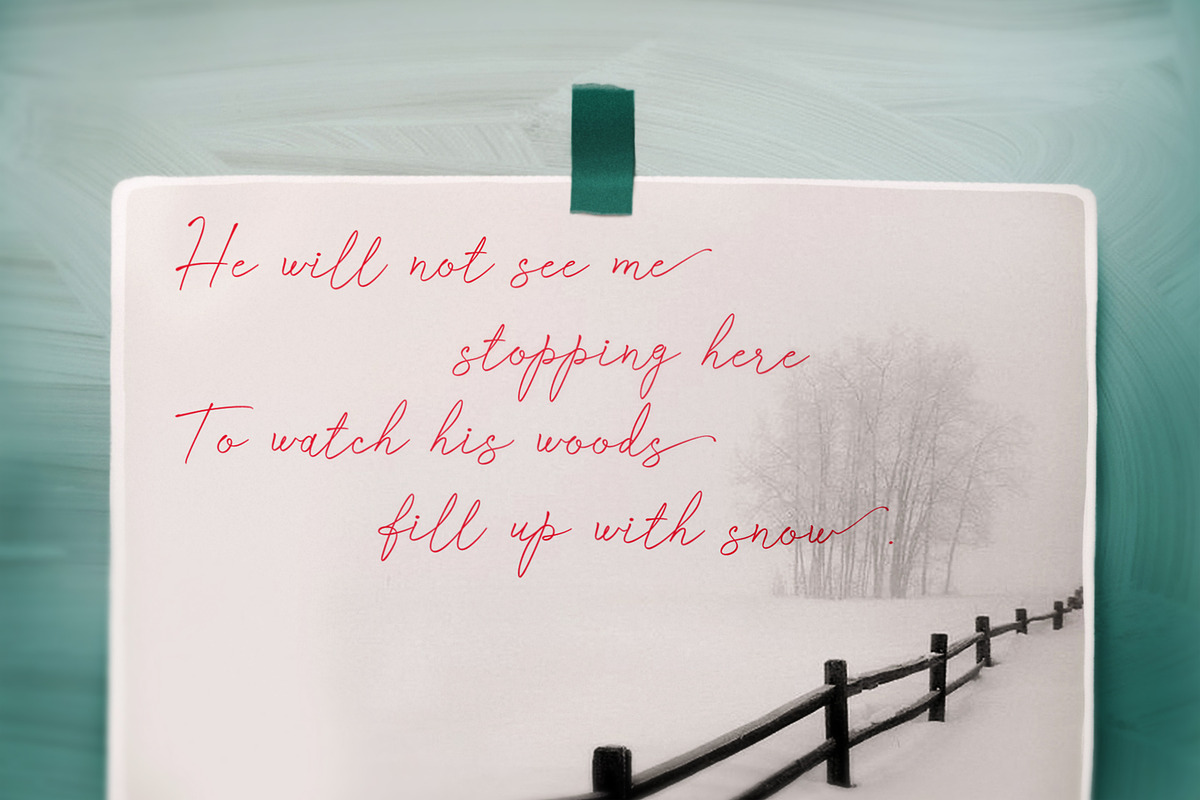 He will not see me
stopping here
To watch his woods
fill up with snow.